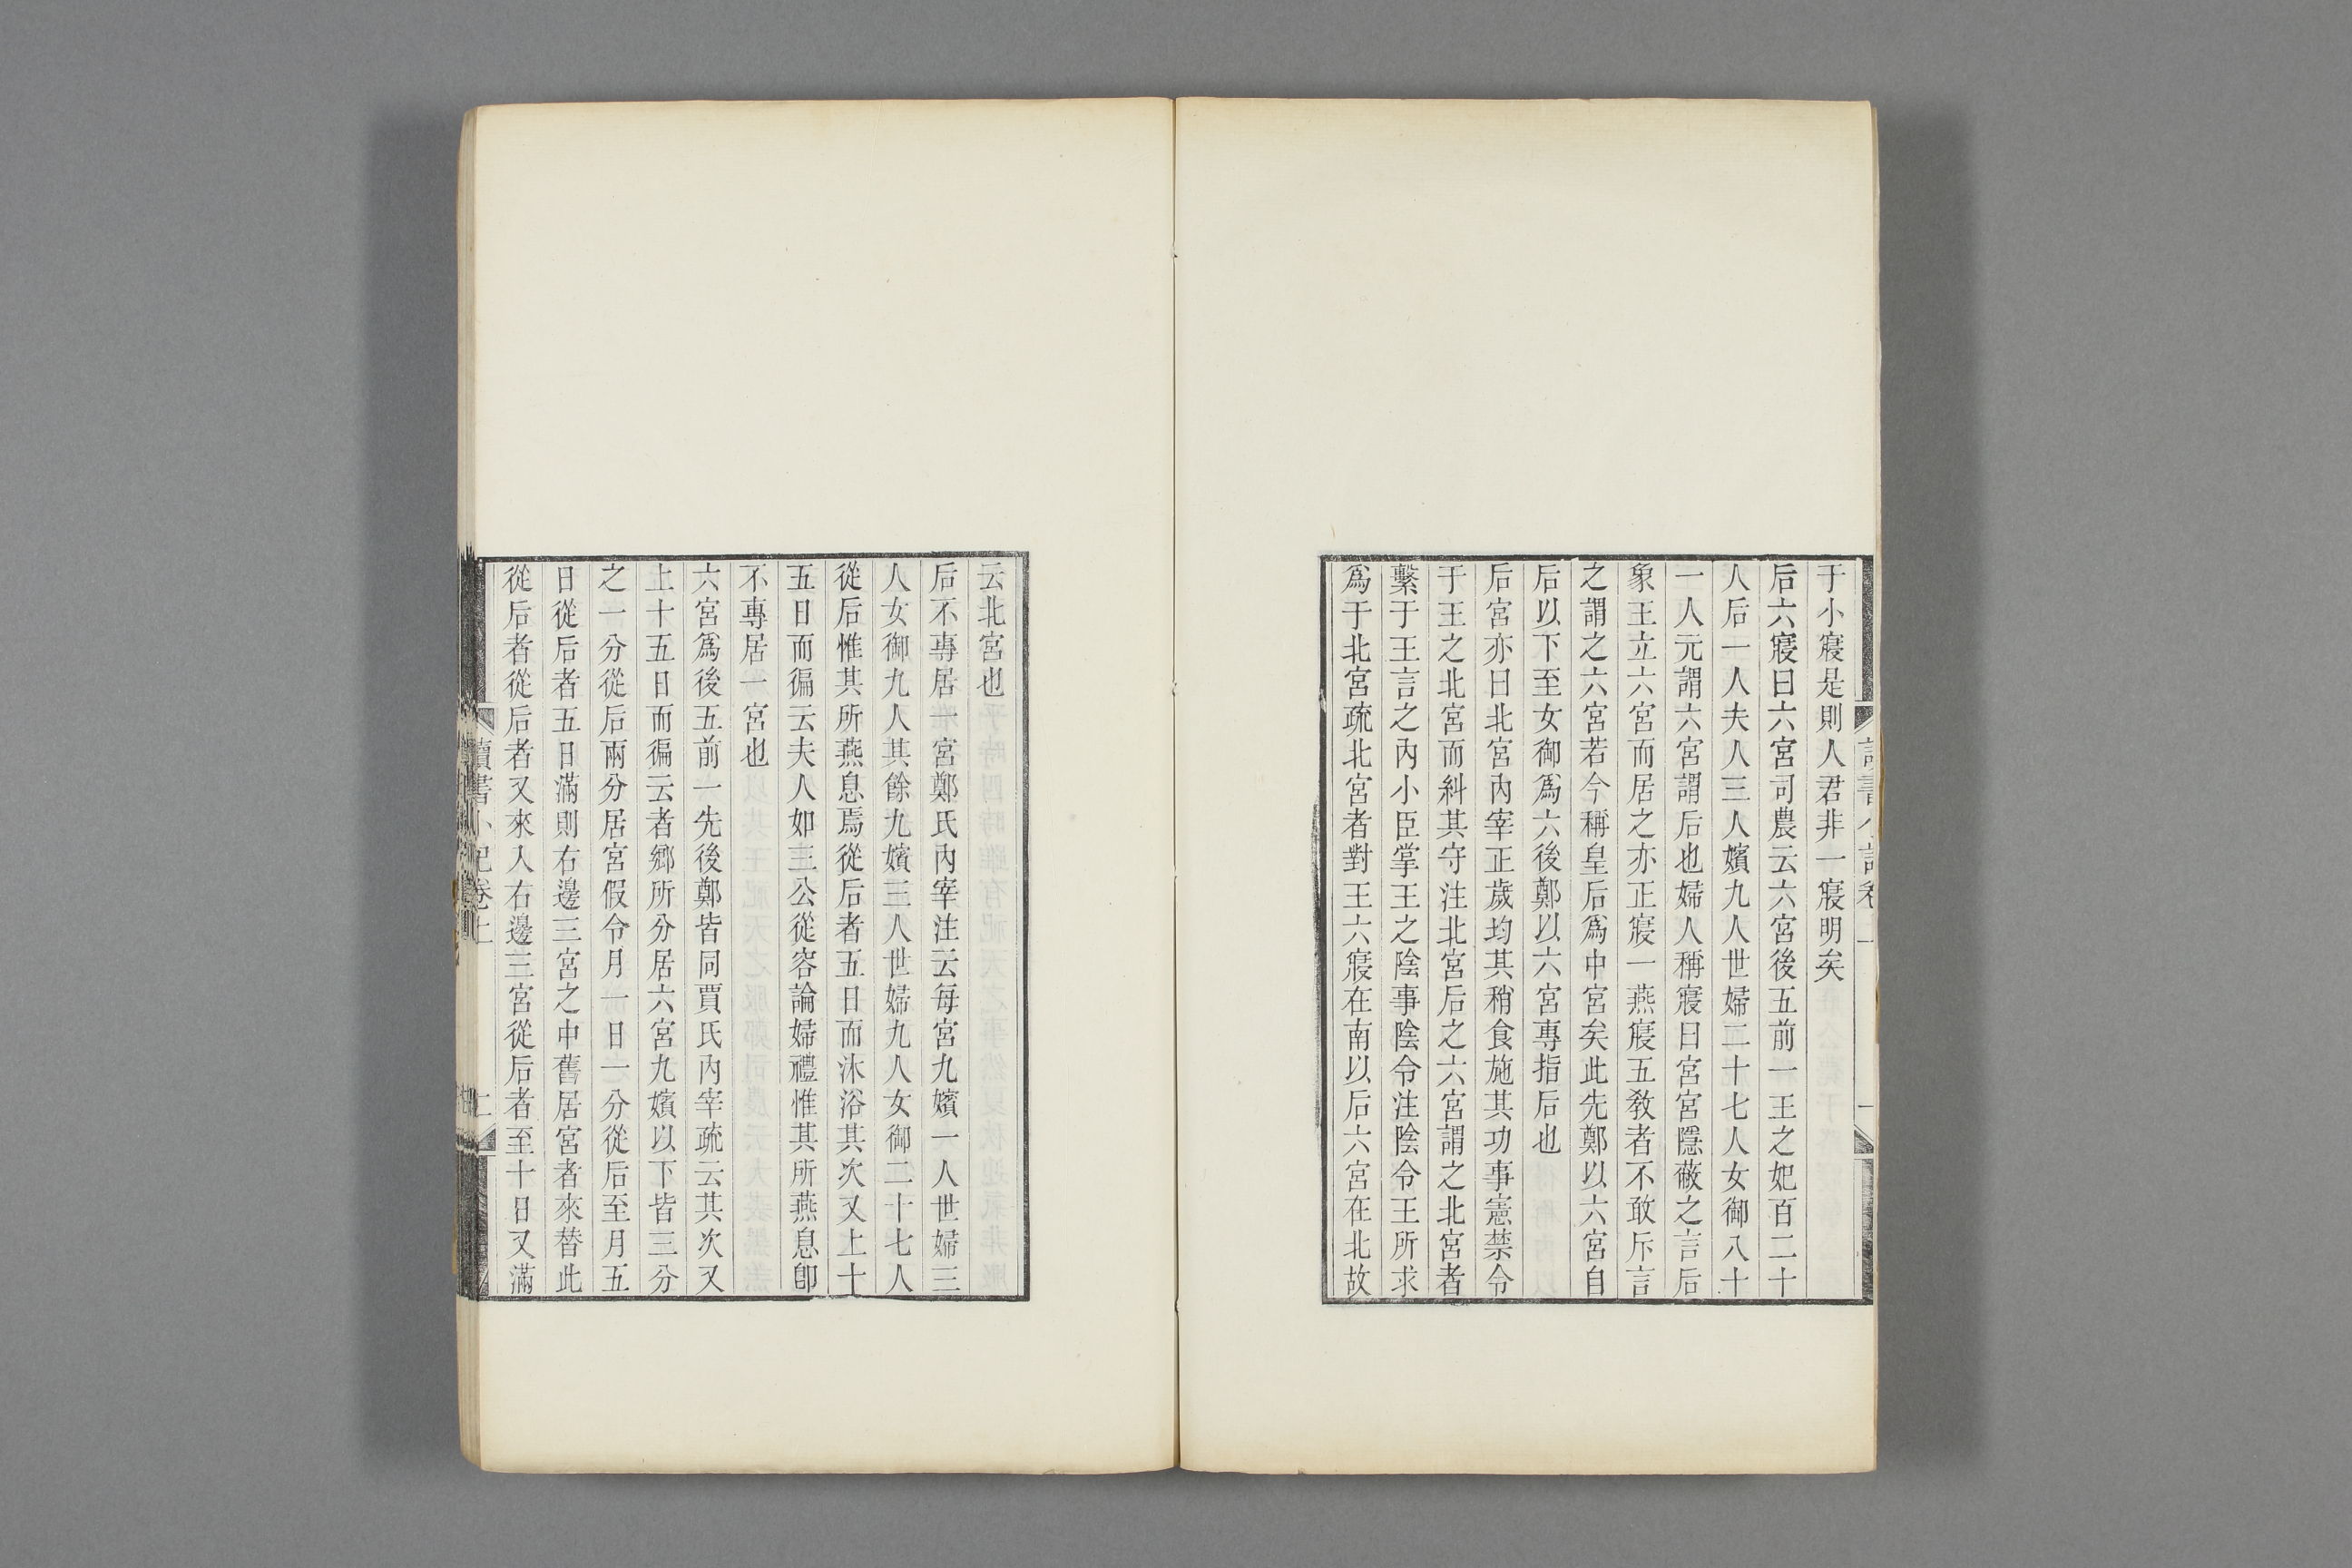 于小寢是則人君非一寢明矣
后六寢曰六宮司農云六宮後五前一王之妃百二十
人后一人夫人三人嬪九人世婦二十七人女御八十
一人元謂六宮謂后也婦人稱寢曰宮宮隱蔽之言后
象王立六宮而居之亦正寢一燕寢五教者不敢斥言
之謂之六宮若今稱皇后爲中宮矣此先鄭以六宮自
后以下至女御爲六後鄭以六宮專指后也
后宮亦曰北宮內宰正歲均其稍食施其功事憲禁令
于王之北宮而糾其守注北宮后之六宮謂之北宮者
繫于王言之內小臣掌王之陰事陰令注陰令王所求
爲于北宮疏北宮者對王六寢在南以后六宮在北故
云北宮也
后不專居一宮鄭氏內宰注云每宮九嬪一人世婦三
人女御九人其餘九嬪三人世婦九人女御二十七人
從后惟其所燕息焉從后者五日而沐浴其次又上十
五日而徧云夫人如三公從容論婦禮惟其所燕息卽
不專居一宮也
六宮爲後五前一先後鄭皆同賈氏內宰疏云其次又
上十五日而徧云者鄉所分居六宮九嬪以下皆三分
之一分從后兩分居宮假令月一日一分從后至月五
日從后者五日滿則右邊三宮之中舊居宮者來替此
從后者從后者又來入右邊三宮從后者至十日又滿
讀書小記卷上
二